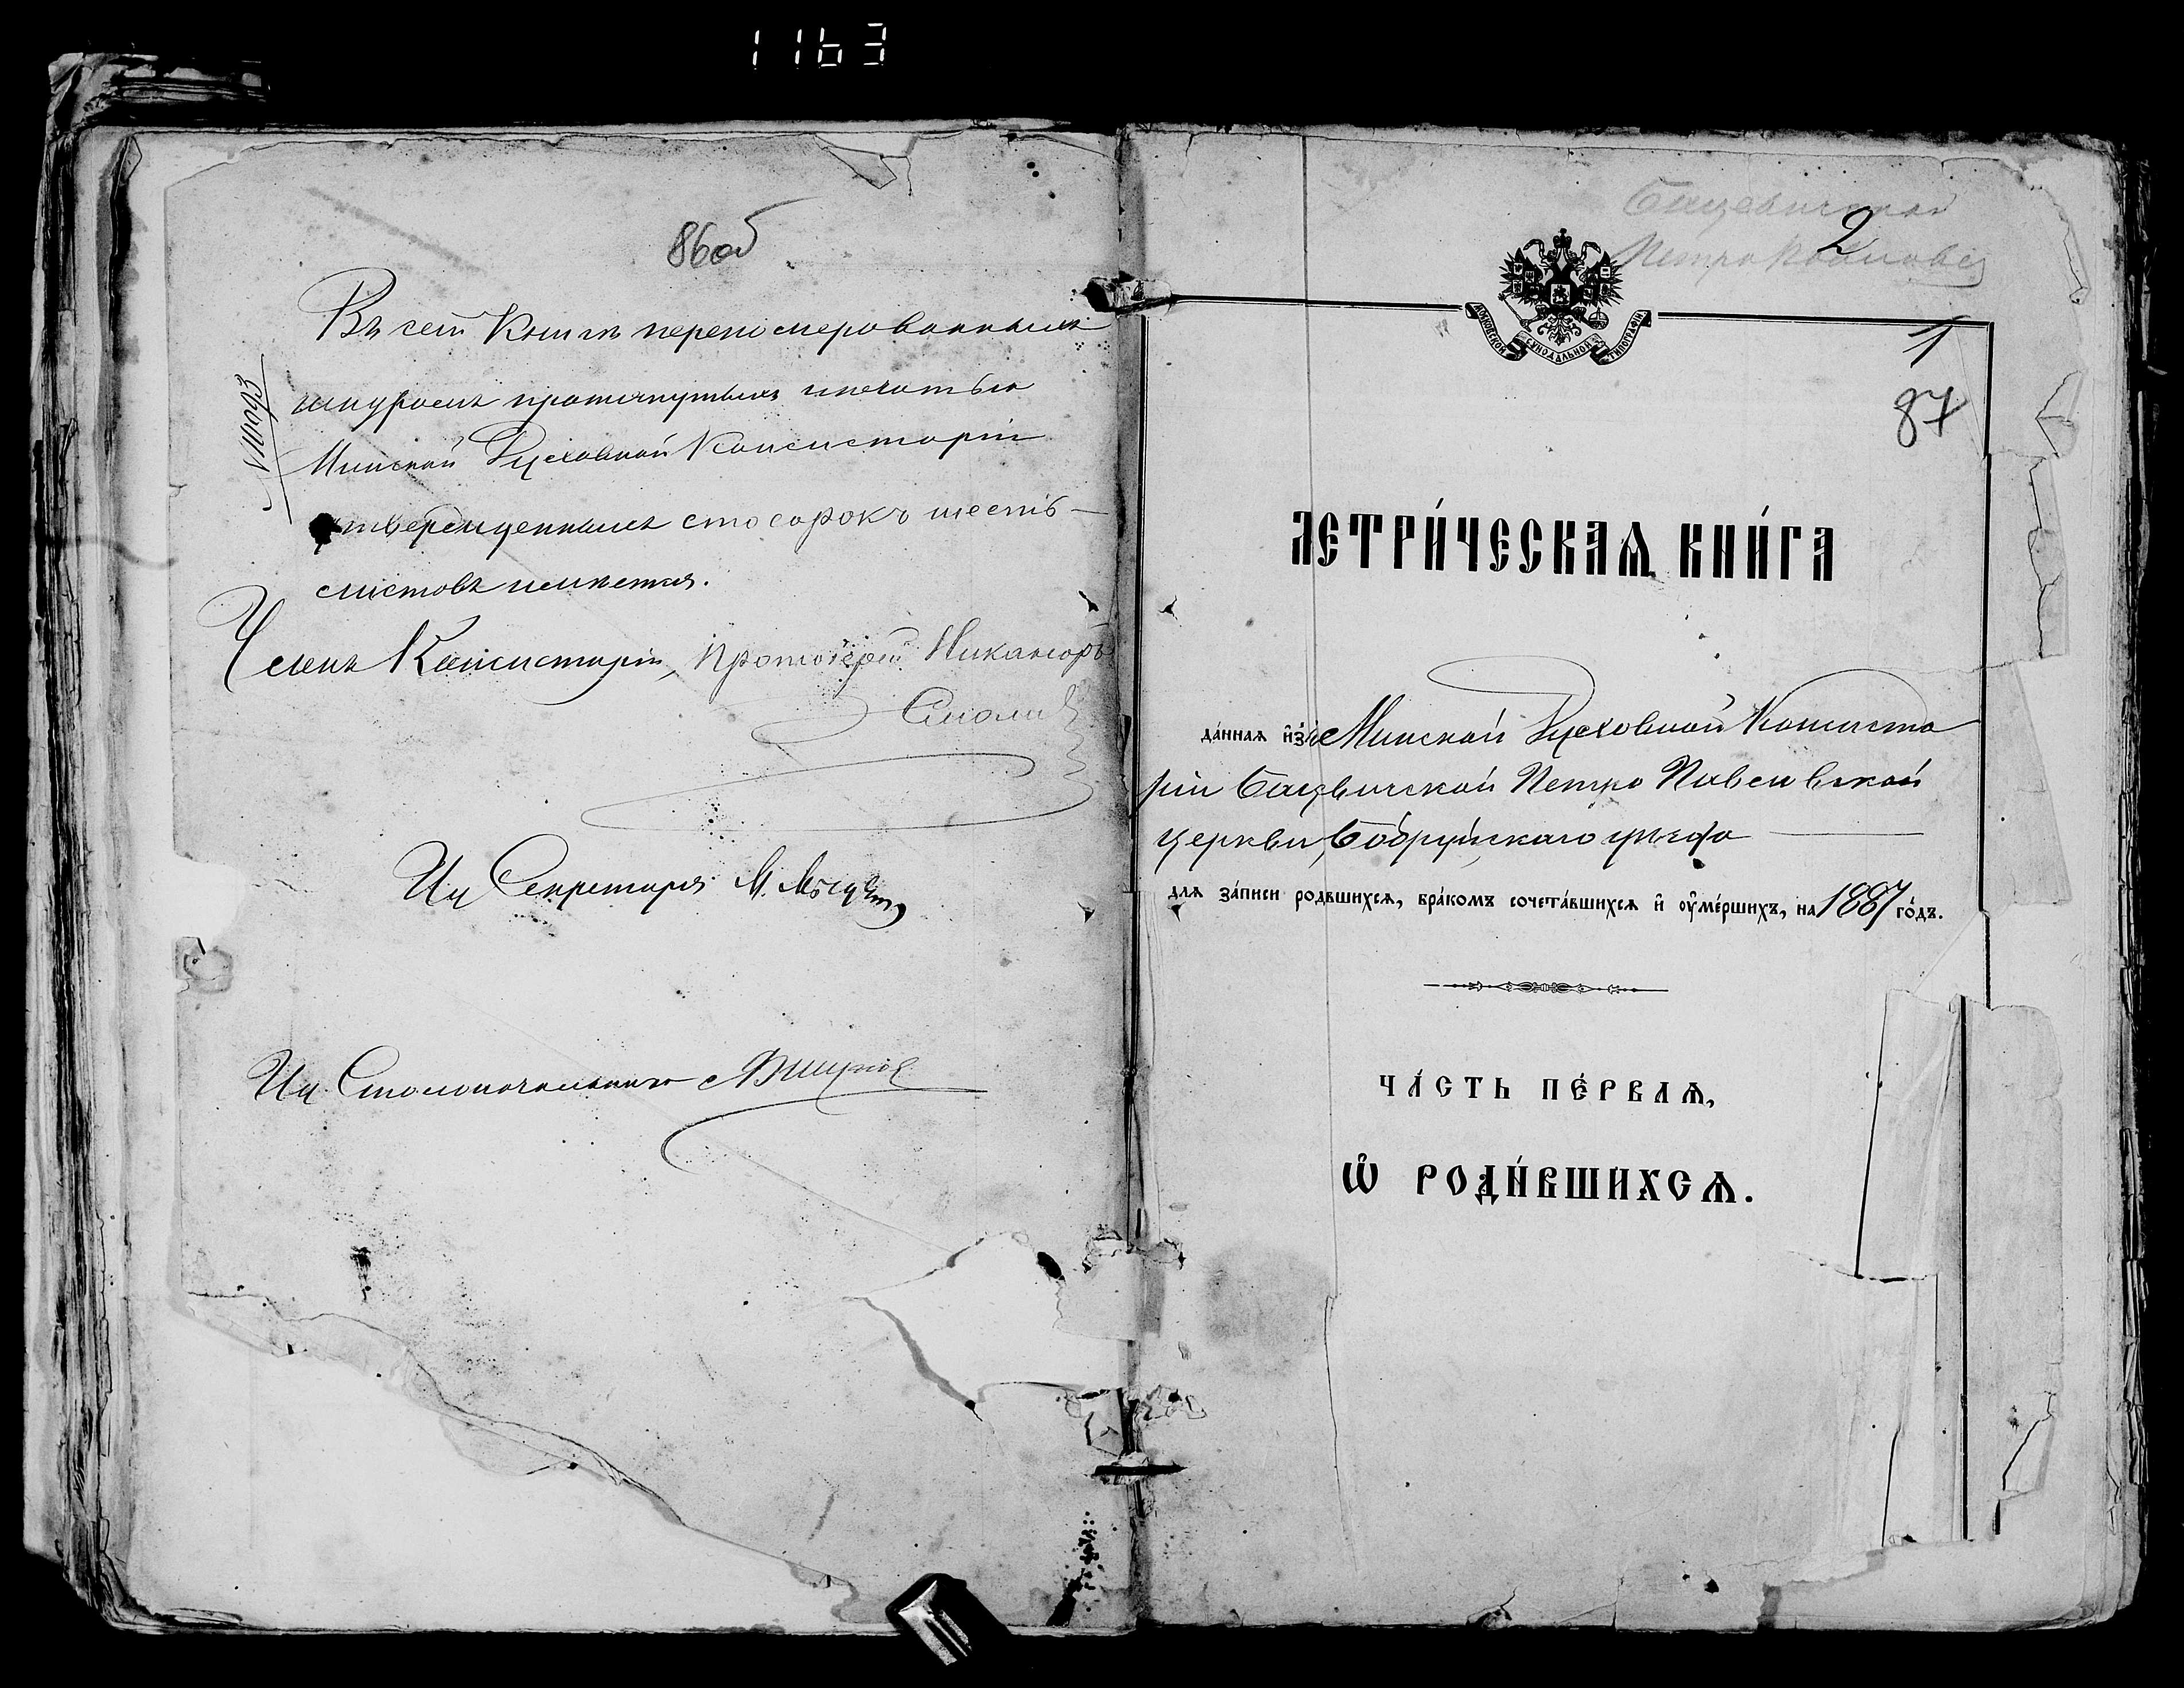 1163
86об
Въ сей Книгѣ перенумерованныхъ
шнуромъ протянутыхъ и печатью
№ 11093
Минской Духовной Консисторіи
утвержденныхъ сто сорокъ шесть
листовъ имѣется.
Членъ Консисторіи, Протоіерей Никаноръ
Смолич
Ид Секретаря М.
Ид Столоначальника
Бацевичской
Петро Павловс
2
МОСКОВСКОЙ СУНОДАЛЬНОЙ ТИПОГРАФІИ
1
87
МЕТРИ́ЧЕСКАѦ КНИ́ГА
да́ннаѧ и҆зъ Минской Духовной Консисто
ріи Бацевичской Петро Павловской
церкви, Бобруйскаго уѣзда
длѧ за́писи роди́вшихсѧ, бра́комъ сочета́вшихсѧ и҆ оу҆ме́ршихъ, на 1887 го́дъ.
ЧА́СТЬ ПЕ́РВАѦ,
Ѡ҆ РОДИ́ВШИХСѦ.